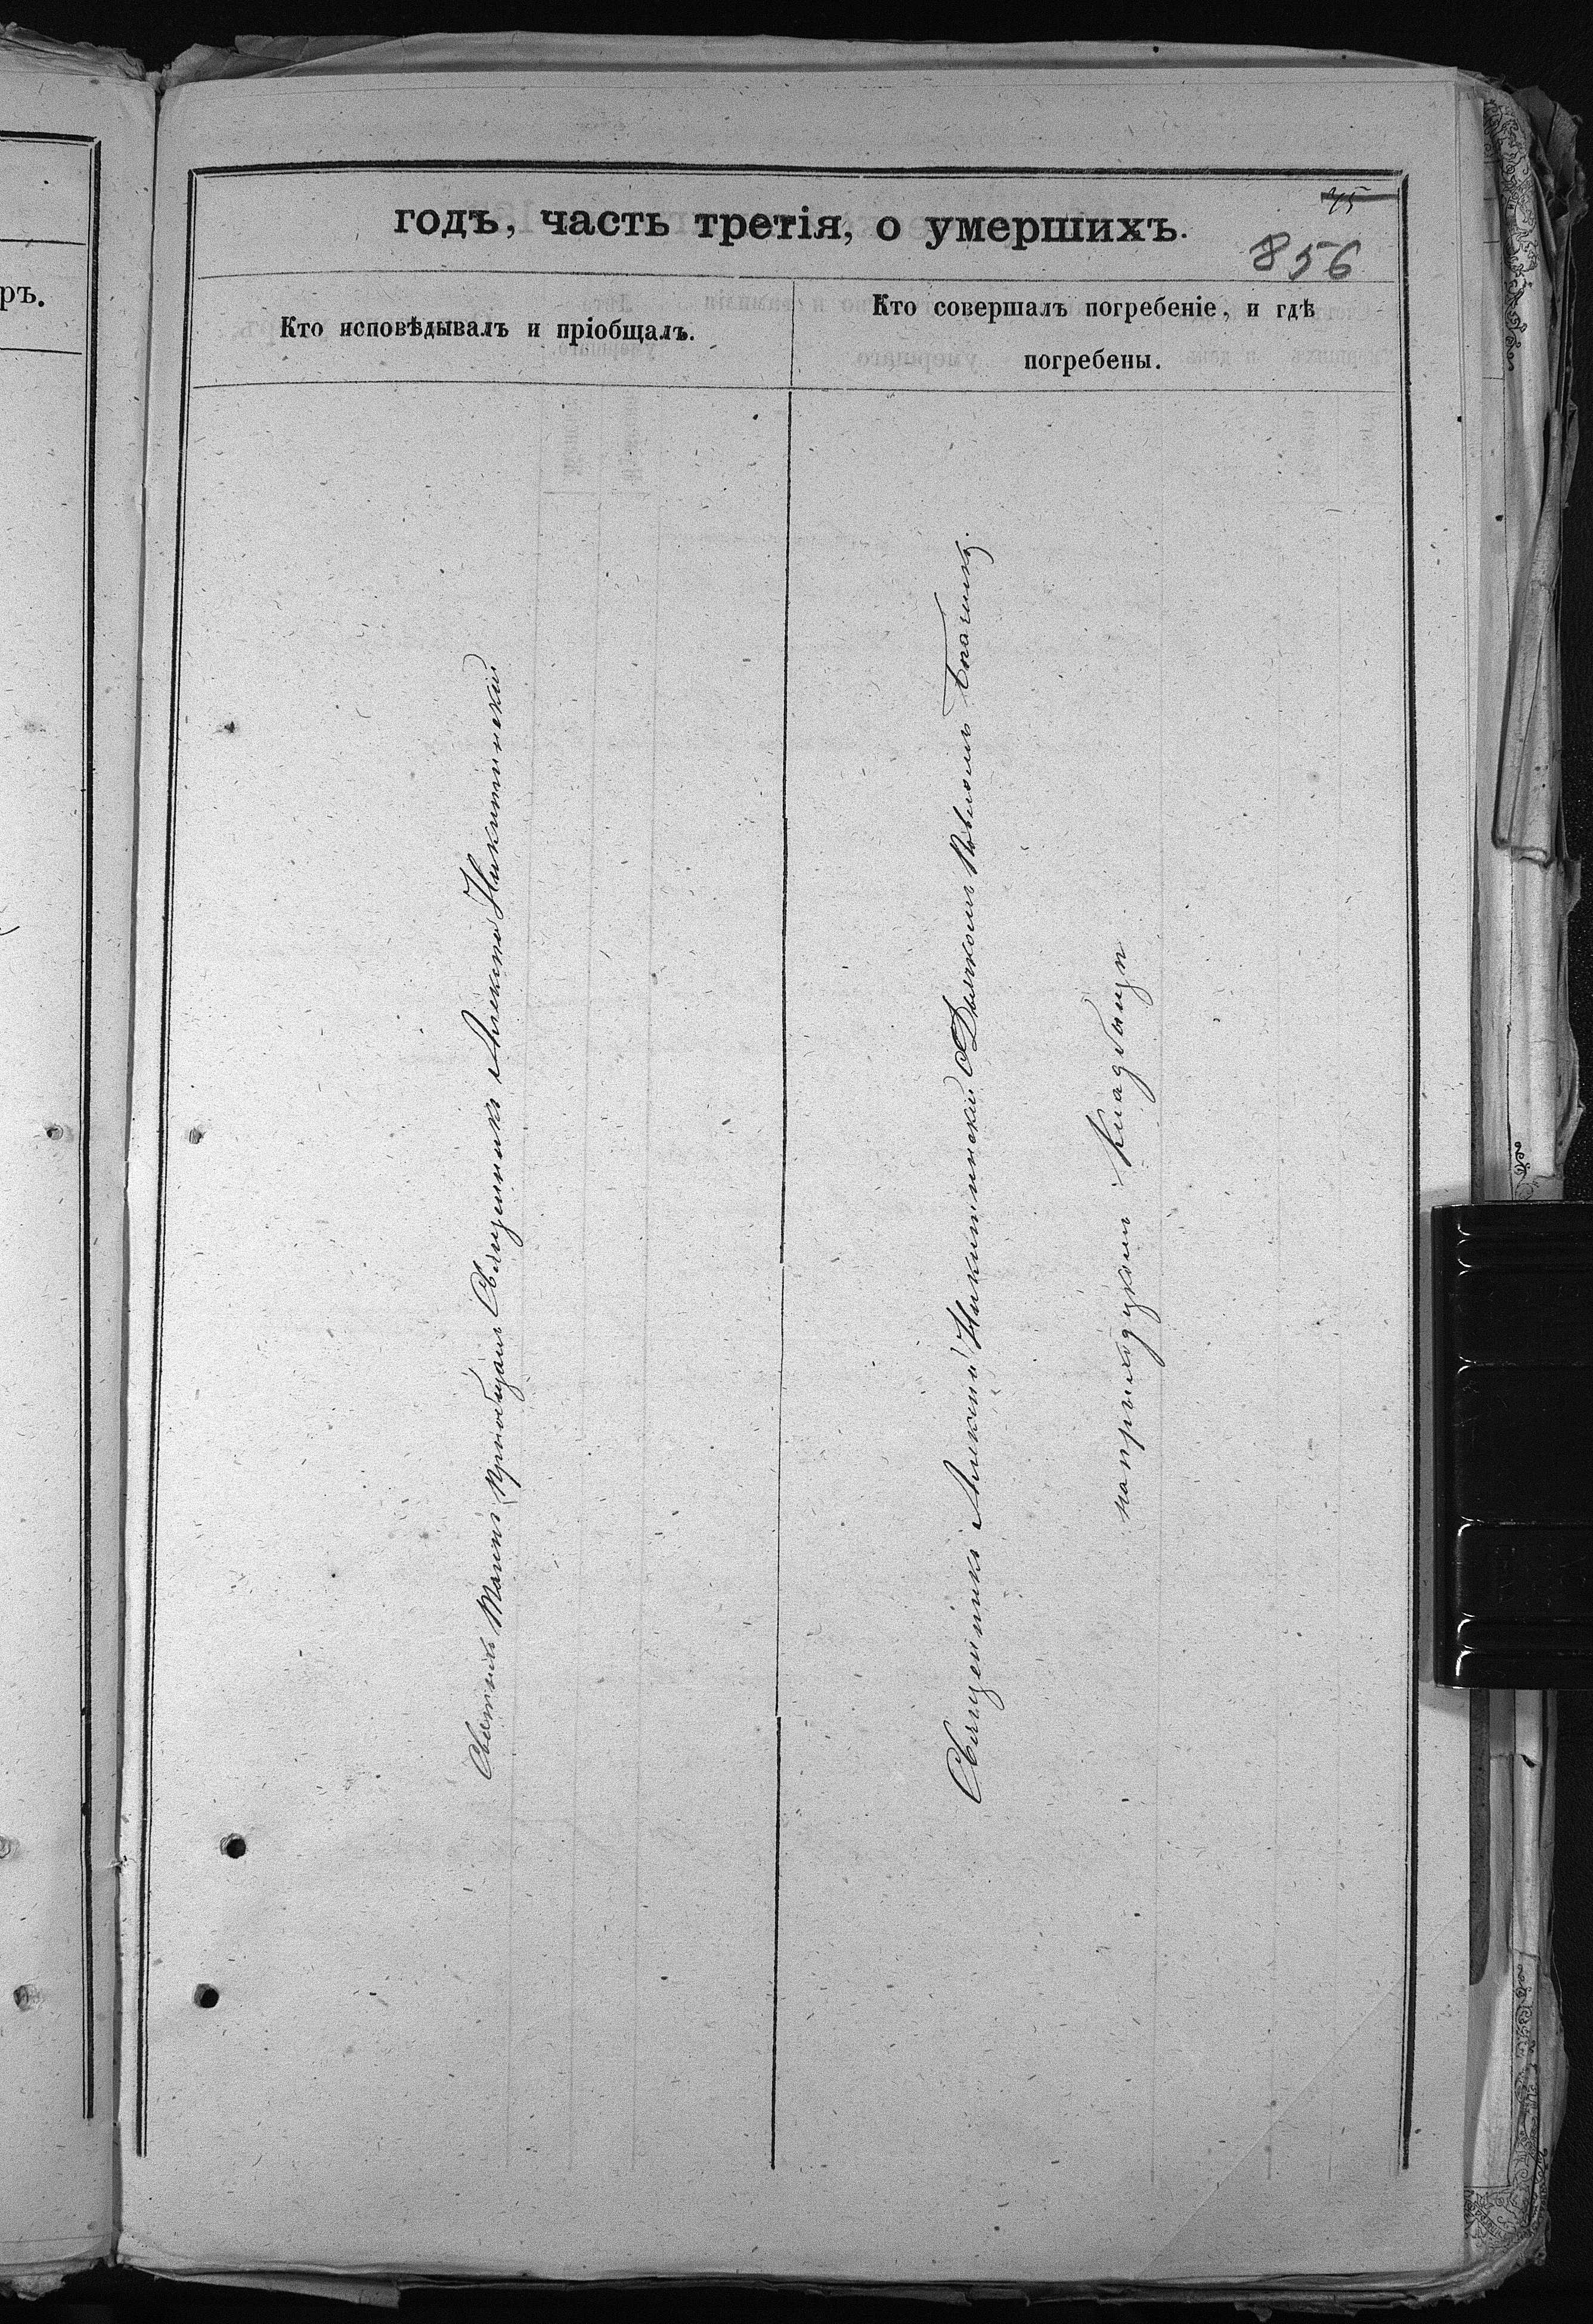 ръ.
45
годъ, часть третія, о умершихъ.
856
Кто исповѣдывалъ и пріобщалъ.
Кто совершалъ погребеніе, и гдѣ
погребены.
Святыхъ Таинъ пріобщалъ Священникъ Алексѣй Никитинскій
Священникъ Алексѣй Никитинскій Дьячкомъ
на приходскомъ кладбищи